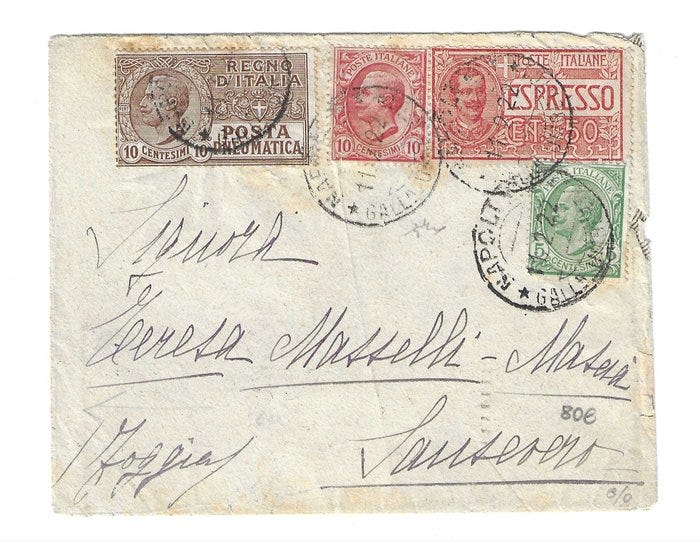 REGNO
D'ITALIA
POSTA
PNEUMATICA
10 CENTESIMI 10
POSTE ITALIANE
10 CENTESIMI 10
POSTE ITALIANE
ESPRESSO
POSTE ITALIANE
5 CENTESIMI
NAPOLI
GALLA
Signora
Teresa Masselli-Mascia
806
(Foggia)
Sansevero